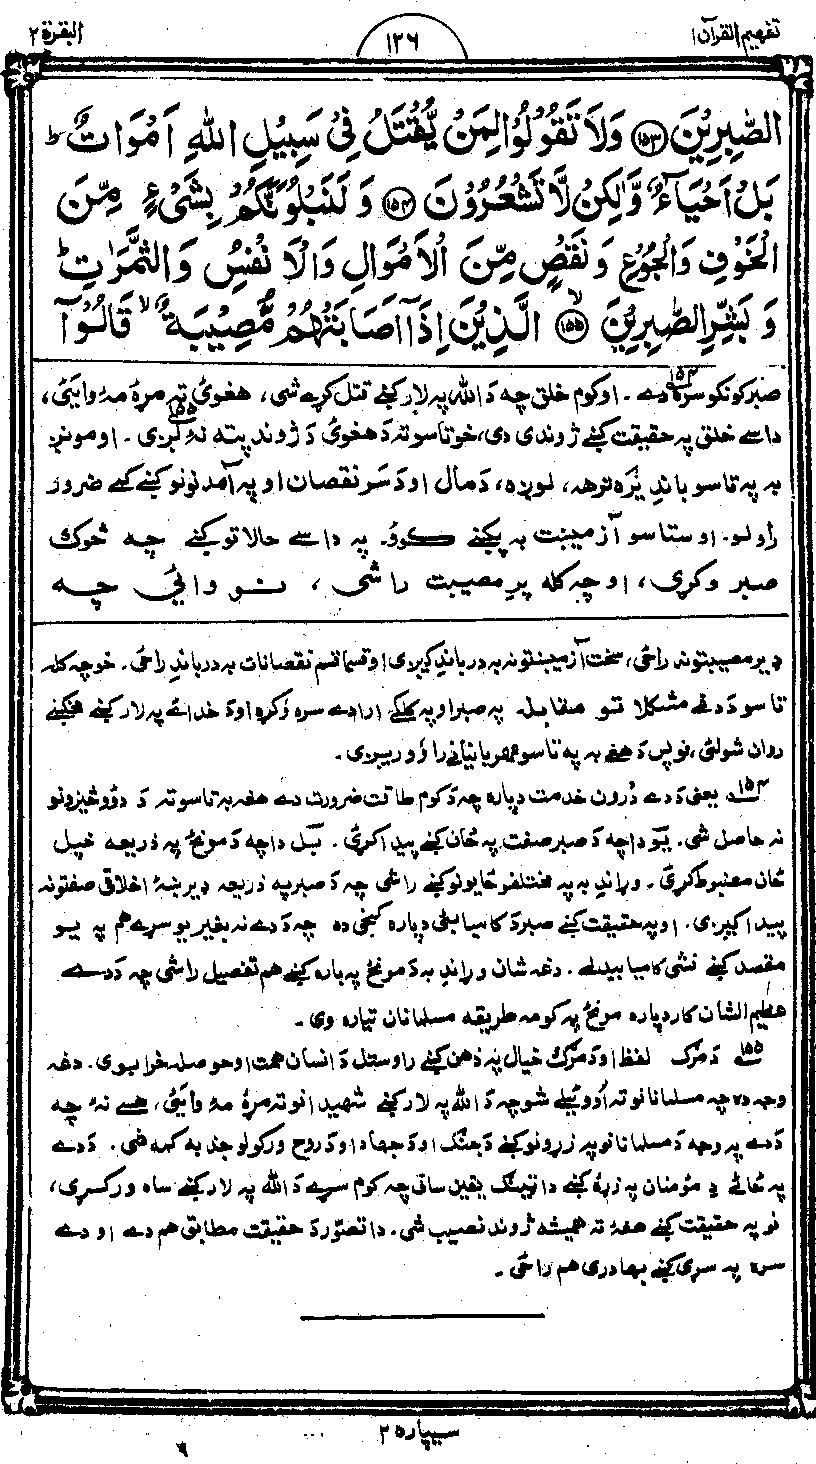 تفهیم القرآن ۱
۱۲۶
البقرة ۲
الصّٰبِرِيْنَ ۝۱۵۳ وَلَا تَقُوْلُوْا لِمَنْ يُّقْتَلُ فِيْ سَبِيْلِ اللّٰهِ اَمْوَاتٌ ؕ
بَلْ اَحْيَآءٌ وَّلٰكِنْ لَّا تَشْعُرُوْنَ ۝۱۵۴ وَ لَنَبْلُوَنَّكُمْ بِشَيْءٍ مِّنَ
الْخَوْفِ وَالْجُوْعِ وَ نَقْصٍ مِّنَ الْاَمْوَالِ وَالْاَنْفُسِ وَالثَّمَرٰتِ ؕ
وَ بَشِّرِ الصّٰبِرِيْنَ ۝۱۵۵ الَّذِيْنَ اِذَآ اَصَابَتْهُمْ مُّصِيْبَةٌ ۙ قَالُوْٓا
صبر کونکو سره دے۔۱۵۴ اوکوم خلق چه دَ الله په لار کښے قتل کړے شی، هغوئ ته مرهٔ مهٔ وایئ،
داسے خلق په حقیقت کښے ژوندی دی، خو تاسو ته دَ هغوئ دَ ژوند پته نهٔ لږی۔۱۵۵ او مونږ
به په تاسو باندِ یَره ترهه، لوږه، دَ مال او دَ سَر نقصان او په آمدنونو کښے کمے ضرور
راولو۔ او ستاسو آزمیښت به پکښے کوو۔ په داسے حالاتو کښے چه څوک
صبر وکړی، او چه کله پرِ مصیبت راشی، نو وائی چه
ډیر مصیبتونه راځی، سخت آزمیښتونه به در باندِ کیږی او قسما قسم نقصانات به در باندِ راځی۔ خو چه کله
تاسو دَ دغے مشکلاتو مقابله په صبر او په کلکے ارادے سره وَکړه او دَ خدائے په لار کښے مخکښے
روان شولئ، نو پس دَ هغے به په تاسو مهربانیانے راوَوریږی۔
۱۵۳ یعنی دَ دے دُرون خدمت دپاره چه دَ کوم طاقت ضرورت دے هغه به تاسو ته دَ دوُو څیزونو
نه حاصل شی۔ یَو دا چه دَ صبر صفت په ځان کښے پیدا کړئ۔ بَل دا چه دَ مونځ په ذریعه خپل
ځان مضبوط کړئ۔ وړاندِ به په مختلفو ځایونو کښے راشی چه دَ صبر په ذریعه ډیر ښهٔ اخلاقی صفتونه
پیدا کیږی۔ او په حقیقت کښے صبر دَ کامیابئ دپاره کنجی ده چه دَ دے نه بغیر یو سړے هم په یو
مقصد کښے نشی کامیابیدلے۔ دغه شان وړاندِ به دَ مونځ په باره کښے هم تفصیل راشی چه دَ دے
عظیم الشان کار دپاره مونځ په کومه طریقه مسلمانان تیاره وی۔
۱۵۵ دَ مرګ لفظ او دَ مرګ خیال په ذهن کښے راوستل دَ انسان همت او حوصله خرابوی۔ دغه
وجه ده چه مسلمانانو ته اُووئیلے شو چه دَ الله په لار کښے شهیدانو ته مرهٔ مهٔ وایئ، هسے نهٔ چه
دَ دے په وجه دَ مسلمانانو په زړونو کښے دَ جنګ او دَ جهاد او دَ روح ورکولو جذبه کمه شی۔ دَ دے
په ځائے دِ مؤمنان په زړهٔ کښے دا ټینګ یقین ساتی چه کوم سړے دَ الله په لار کښے ساه ورکړی،
نو په حقیقت کښے هغهٔ ته همیشه ژوند نصیب شی۔ دا تصوّر دَ حقیقت مطابق هم دے او دے
سره په سړی کښے بهادری هم راځی۔
سیپاره ۲
۹